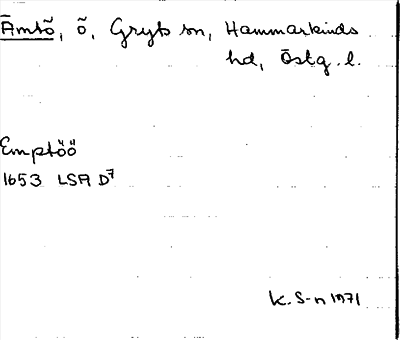 Āmtö, ö, Gryts sn, Hammarkinds
hd, Östg. l.
Emptöö
1653 LSA D7
K. S-n 1971